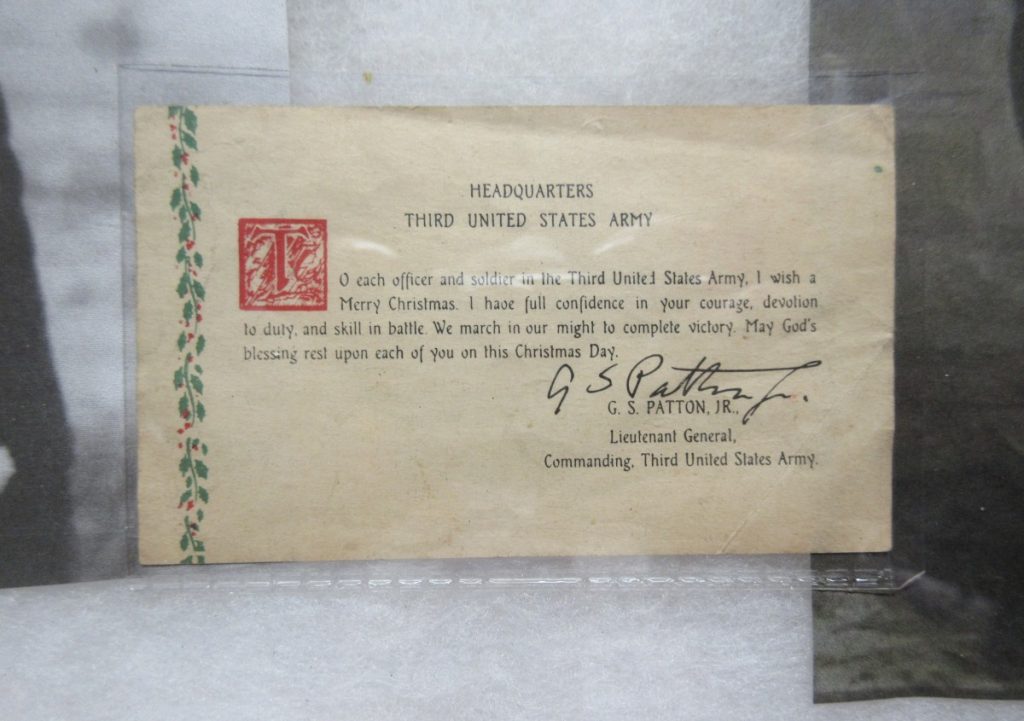 HEADQUARTERS
THIRD UNITED STATES ARMY
TO each officer and soldier in the Third United States Army, I wish a
Merry Christmas. I have full confidence in your courage, devotion
to duty, and skill in battle. We march in our might to complete victory. May God's
blessing rest upon each of you on this Christmas Day.
G S Patton Jr.
G. S. PATTON, JR.,
Lieutenant General,
Commanding, Third United States Army.